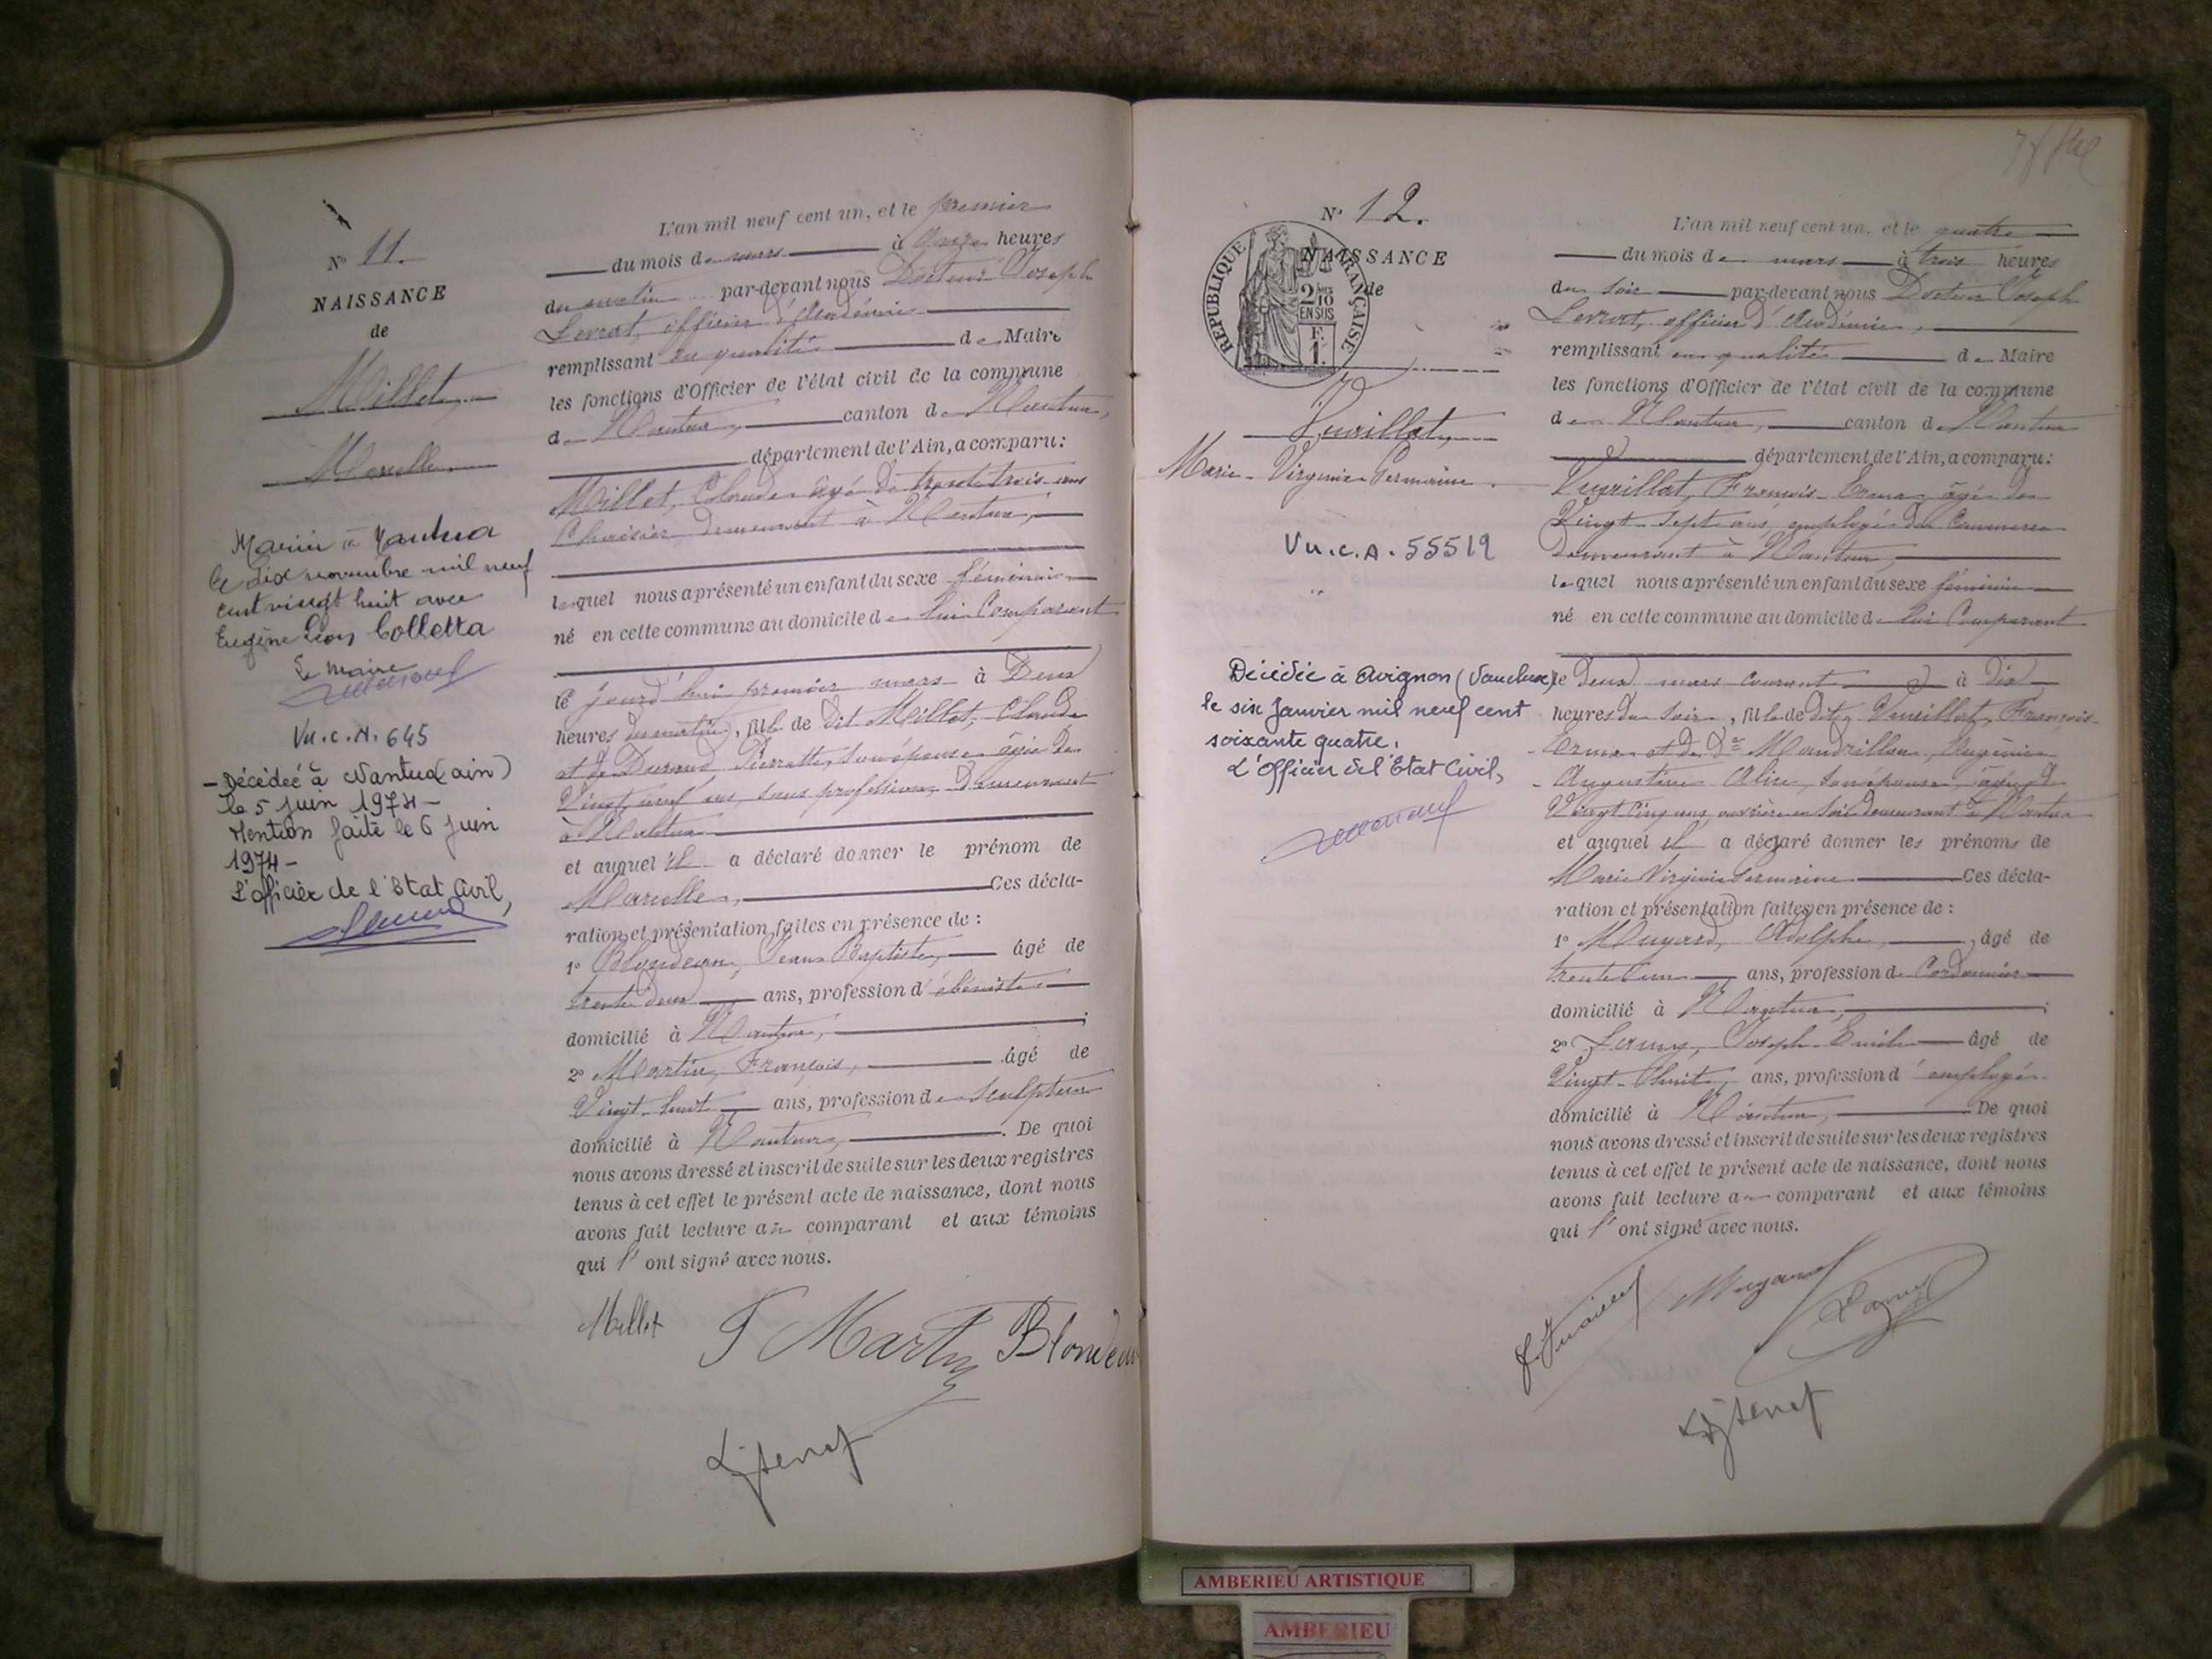 N° 11.
NAISSANCE
de
Millet,
Marcelle
Mariée à Nantua
le dix novembre mil neuf
cent vingt huit avec
Eugène Léon Colletta
Le Maire
Vu.C.A. 645
- Décédée à Nantua (ain)
le 5 juin 1974 -
Mention faite le 6 juin
1974 -
L'officier de l'Etat Civil,
L'an mil neuf cent un, et le premier
du mois de mars à onze heures
du matin par-devant nous Docteur Joseph
Levrat, officier d'Académie
remplissant en qualité de Maire
les fonctions d'Officier de l'état civil de la commune
de Nantua, canton de Nantua,
département de l'Ain, a comparu :
Millet, Claude âgé de trente trois ans
demeurant à Nantua,
lequel nous a présenté un enfant du sexe féminin
né en cette commune au domicile de lui Comparant
le jourd'hui premier mars à Deux
heures du matin, fille de dit Millet, Claude
et de Durand, Pierrette, son épouse âgée de
Vingt neuf ans, sans profession, demeurant
à Nantua
et auquel il a déclaré donner le prénom de
Marcelle, Ces décla-
ration et présentation faites en présence de :
1° Blondeau, Jean Baptiste, âgé de
trente deux ans, profession d'ébéniste
domicilié à Nantua, ;
2° Martin, François, âgé de
Vingt-huit ans, profession de sculpteur
domicilié à Nantua, . De quoi
nous avons dressé et inscrit de suite sur les deux registres
tenus à cet effet le présent acte de naissance, dont nous
avons fait lecture au comparant et aux témoins
qui l'ont signé avec nous.
Millet F Martin Blondeau
N° 12.
NAISSANCE
de
REPUBLIQUE FRANÇAISE
2/10
EN SUS
F.
1.
Vuaillat,
Marie-Virginie Germaine
Vu.C.A. 55519
Décédée à Avignon (Vaucluse)
le six Janvier mil neuf cent
soixante quatre.
L'Officier de l'Etat Civil,
L'an mil neuf cent un, et le quatre
du mois de mars à trois heures
du soir par-devant nous Docteur Joseph
Levrat, officier d'Académie,
remplissant en qualité de Maire
les fonctions d'Officier de l'état civil de la commune
de Nantua, canton de Nantua
département de l'Ain, a comparu :
Vuaillat, François âgé de
Vingt-sept ans, employé de Commerce
demeurant à Nantua,
lequel nous a présenté un enfant du sexe féminin
né en cette commune au domicile de lui Comparant
le deux mars courant à dix
heures du soir, fille de dit Vuaillat, François-
et de Dme Mandrillon, Eugénie
Augustine Alice, son épouse, âgée de
Vingt cinq ans, ouvrière en soie demeurant à Nantua
et auquel il a déclaré donner les prénoms de
Marie Virginie Germaine Ces décla-
ration et présentation faites en présence de :
1° Mugard, Adolphe, âgé de
trente un ans, profession de Cordonnier
domicilié à Nantua, ;
2° Lamy, Joseph Emile âgé de
Vingt-huit, ans, profession d'employé
domicilié à Nantua, De quoi
nous avons dressé et inscrit de suite sur les deux registres
tenus à cet effet le présent acte de naissance, dont nous
avons fait lecture au comparant et aux témoins
qui l'ont signé avec nous.
Mugard
AMBERIEU ARTISTIQUE
AMBERIEU